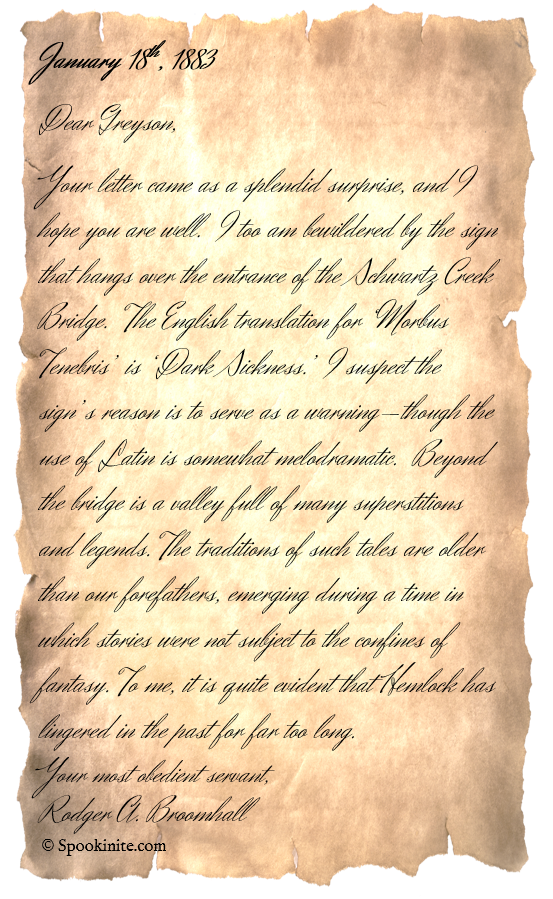 January 18th, 1883
Dear Greyson,
Your letter came as a splendid surprise, and I
hope you are well. I too am bewildered by the sign
that hangs over the entrance of the Schwartz Creek
Bridge. The English translation for 'Morbus
Tenebris' is 'Dark Sickness.' I suspect the
sign's reason is to serve as a warning—though the
use of Latin is somewhat melodramatic. Beyond
the bridge is a valley full of many superstitions
and legends. The traditions of such tales are older
than our forefathers, emerging during a time in
which stories were not subject to the confines of
fantasy. To me, it is quite evident that Hemlock has
lingered in the past for far too long.
Your most obedient servant,
Rodger A. Broomhall
© Spookinite.com